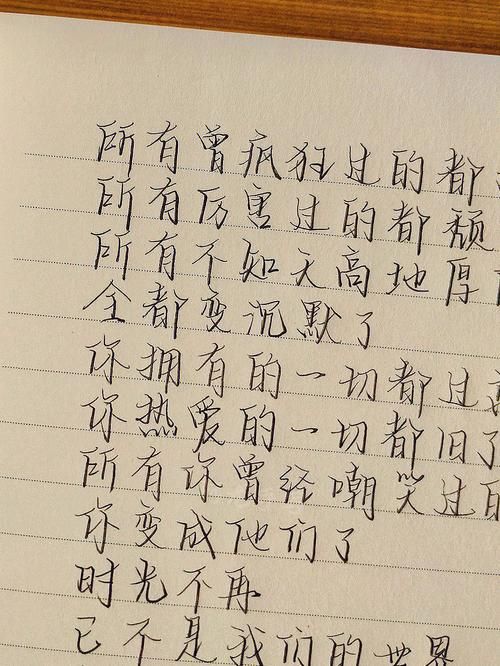 所有曾疯狂过的都
所有厉害过的都颓
所有不知天高地厚
全都变沉默了
你拥有的一切都过
你热爱的一切都旧了
所有你曾经嘲笑过的
你变成他们了
时光不再
已不是我们的世界